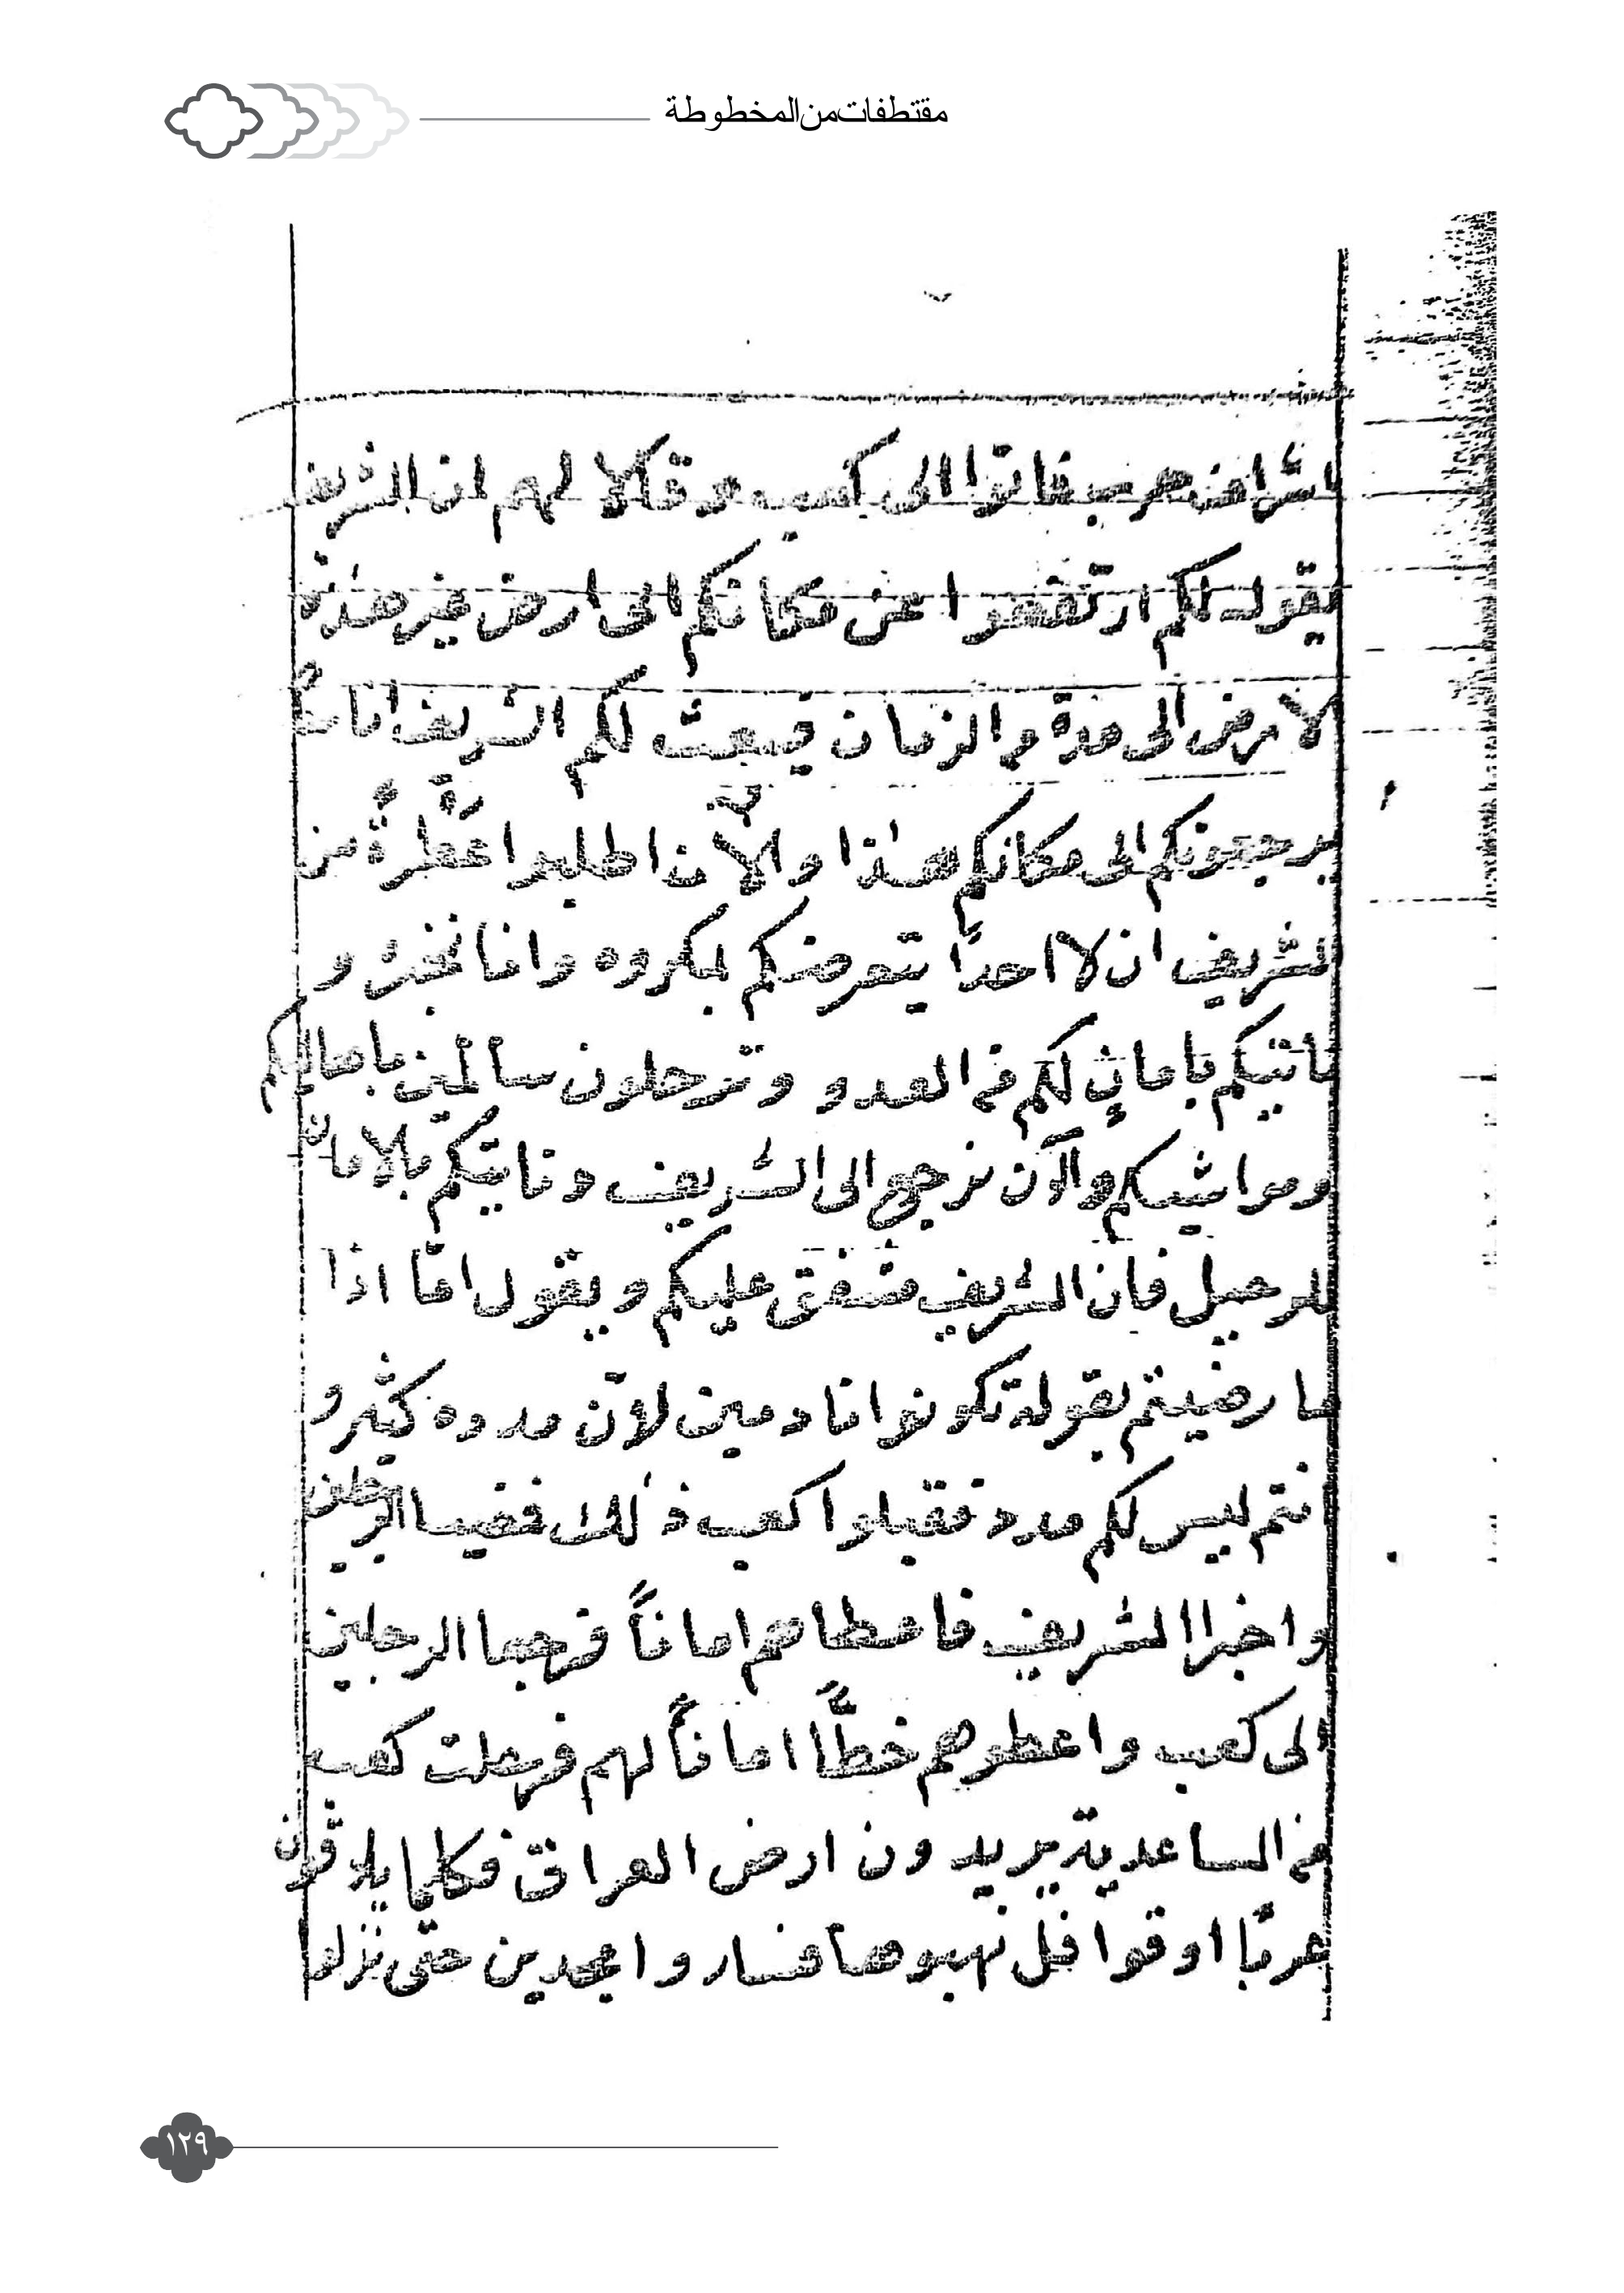 مقتطفات من المخطوطة
اشراف حرب فاتوا الى كعب وقالا لهم ان الشريف
يقول لكم ارتفعوا عن مكانكم الى ارض غير هذه
الارض الى مدة من الزمان فيبعث لكم الشريف اناساً
يرجعونكم الى مكانكم هذا والآن اطلبوا من
الشريف ان لا احداً يتعرضكم بمكروه وانا نخبره و
نأتيكم بامانٍ لكم من العدو وترحلون سالمين باعيالكم
ومواشيكم والآن نرجع الى الشريف ونايتكم بالامان
للرحيل فان الشريف مشفق عليكم ويقول امّا اذا
ما رضيتم بقوله تكونوا نادمين لانّ مدده كثير و
انتم ليس لكم مدد فقبلوا كعب ذلك فمضيا الرجلين
واخبرا الشريف فاعطاهم اماناً فرجعا الرجلين
الى كعب واعطوهم خطّاً اماناً لهم فرحلت كعب
من الساعدية يريدون ارض العراق فكلما يلاقون
عرباً او قوافل نهبوها فساروا مجدين حتى نزلو
١٢٩